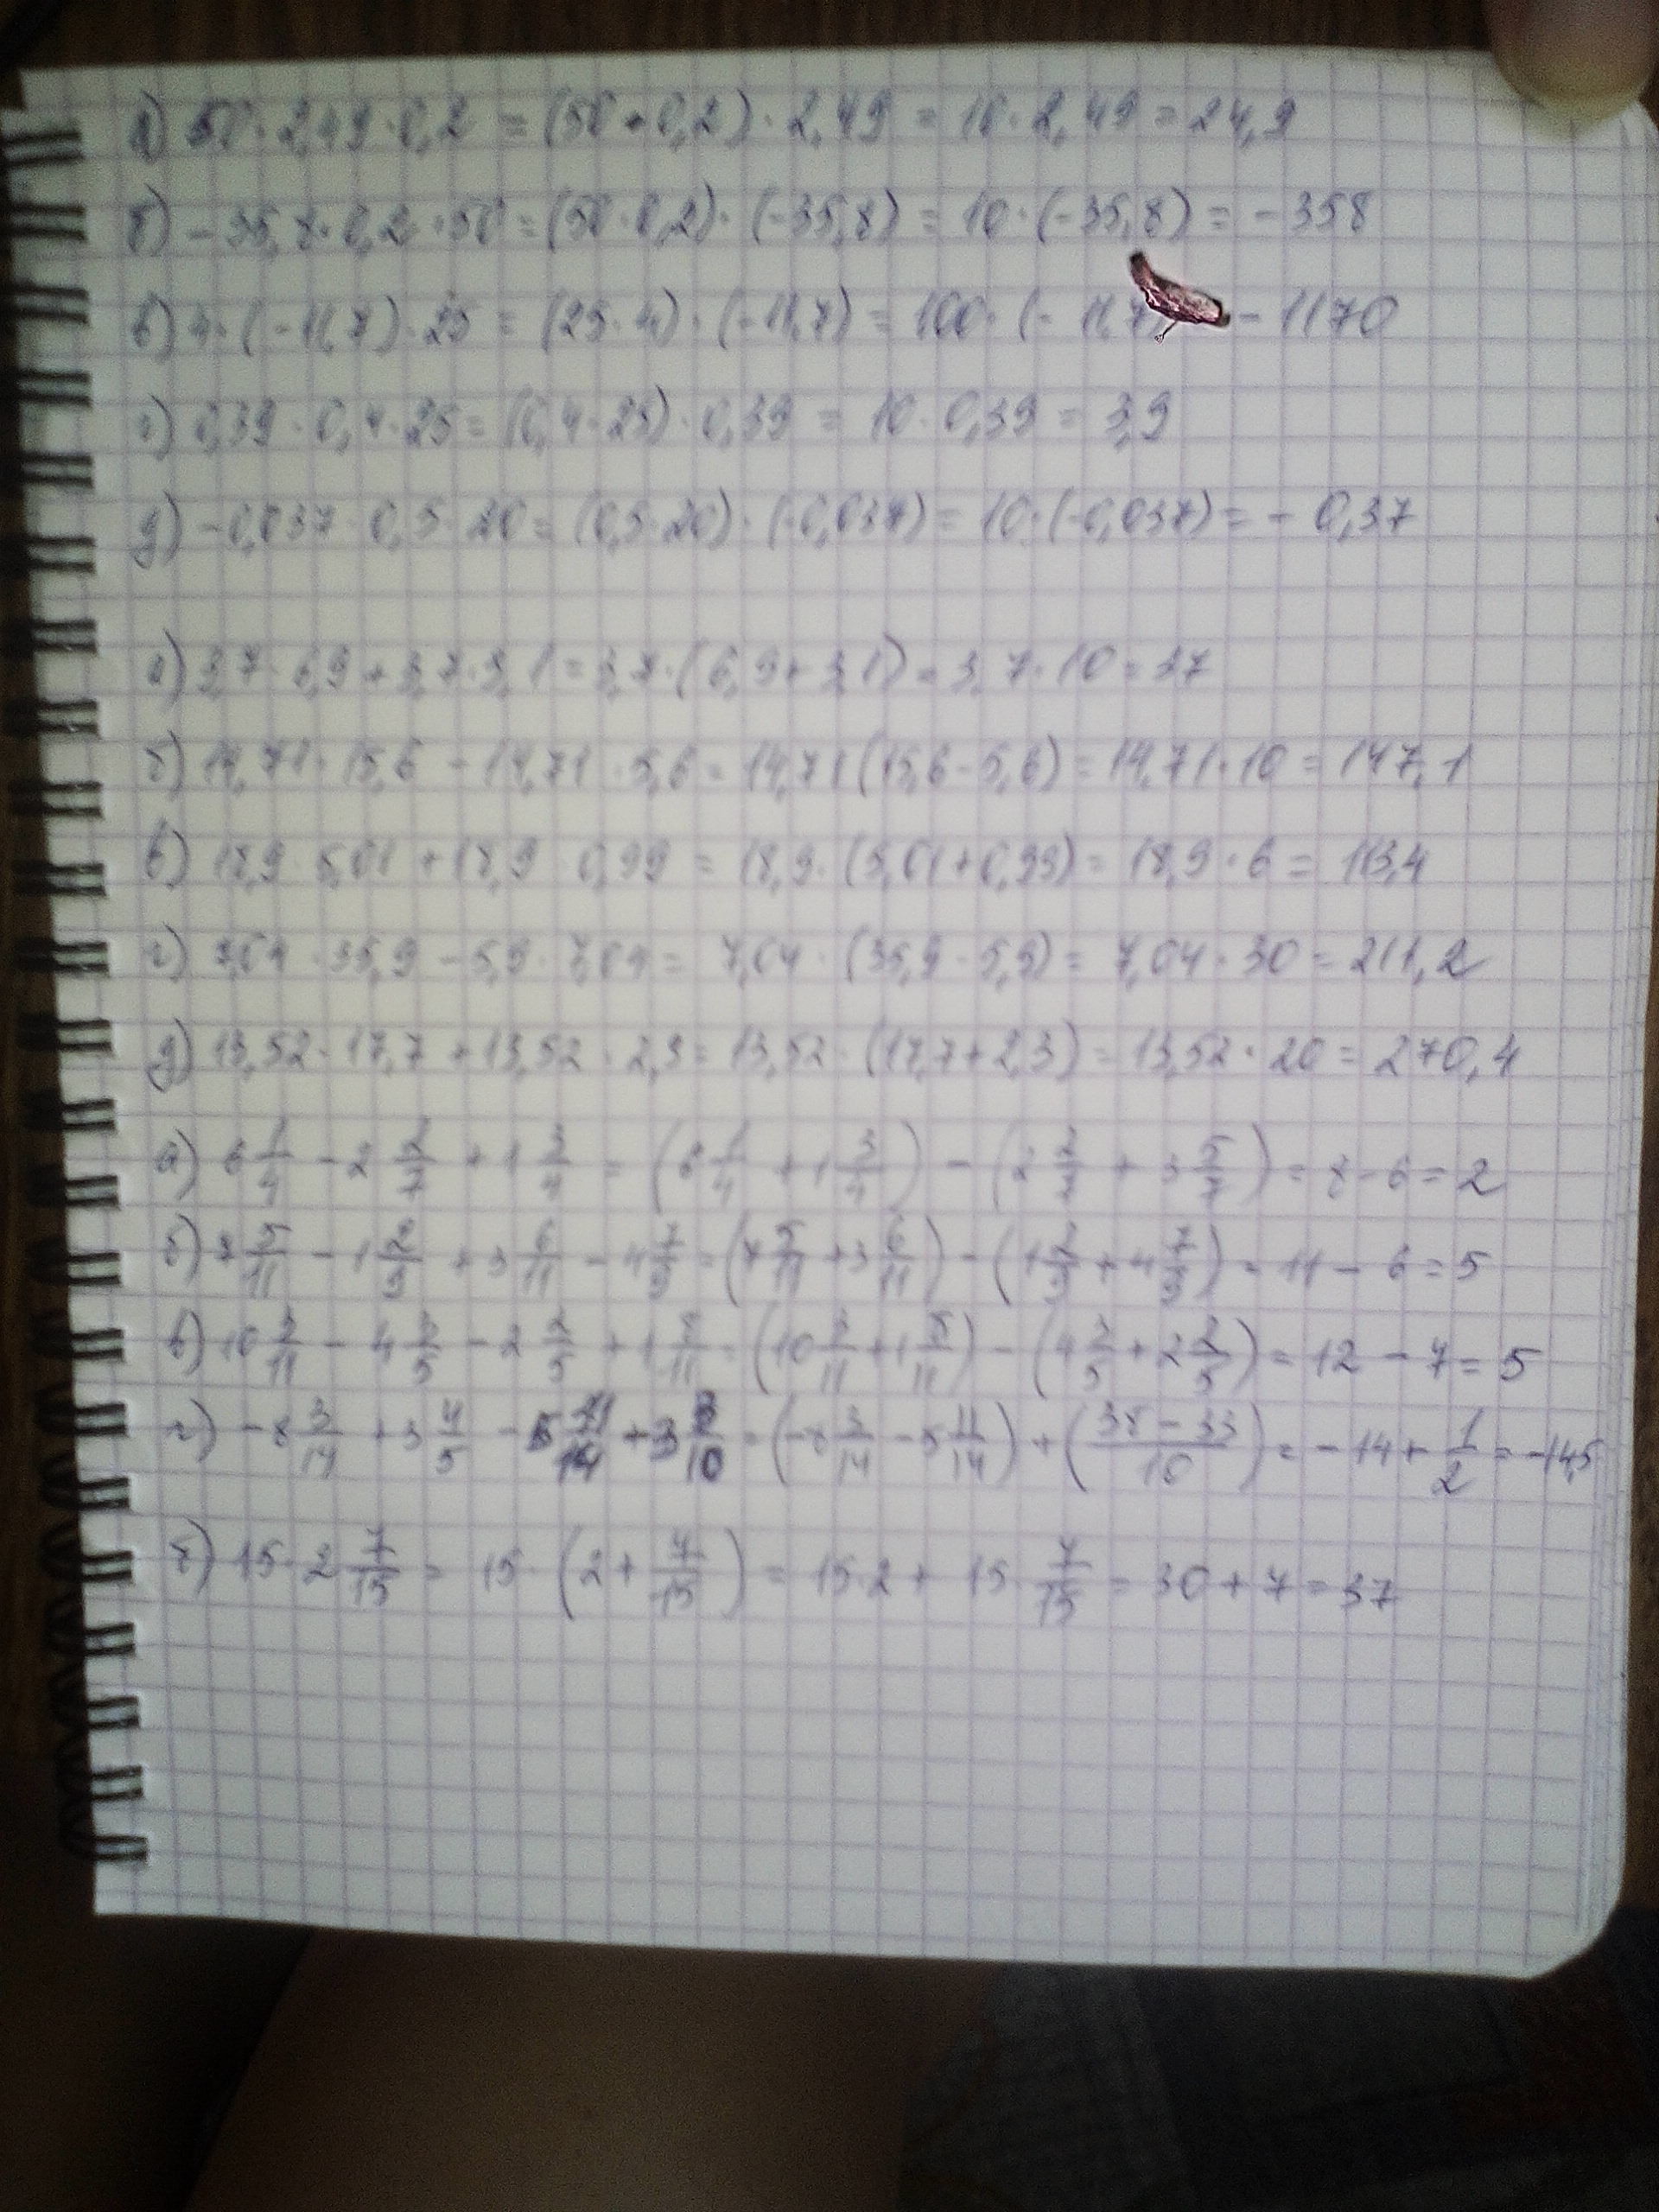 а) 50·2,49·0,2 = (50·0,2)·2,49 = 10·2,49 = 24,9
б) -35,8·0,2·50 = (50·0,2)·(-35,8) = 10·(-35,8) = -358
в) 4·(-11,7)·25 = (25·4)·(-11,7) = 100·(-11,7 - 1170
г) 0,39·0,4·25 = (0,4·25)·0,39 = 10·0,39 = 3,9
д) -0,037·0,5·20 = (0,5·20)·(-0,037) = 10·(-0,037) = -0,37
а) 3,7·6,9+3,7·3,1 = 3,7·(6,9+3,1) = 3,7·10 = 37
б) 14,71·15,6 - 14,71·5,6 = 14,71(15,6-5,6) = 14,71·10 = 147,1
в) 18,9·5,01 + 18,9·0,99 = 18,9·(5,01+0,99) = 18,9·6 = 113,4
г) 7,04·35,9 - 5,9·7,04 = 7,04·(35,9-5,9) = 7,04·30 = 211,2
д) 13,52·17,7 + 13,52·2,3 = 13,52·(17,7+2,3) = 13,52·20 = 270,4
а) 6 1/4 - 2 2/7 + 1 3/4 = (6 1/4 + 1 3/4) - (2 2/7 + 3 5/7) = 8-6 = 2
б) 7 5/11 - 1 2/9 + 3 6/11 - 4 7/9 = (7 5/11 + 3 6/11) - (1 2/9 + 4 7/9) = 11 - 6 = 5
в) 10 3/11 - 4 3/5 - 2 2/5 + 1 8/11 = (10 3/11 + 1 8/11) - (4 3/5 + 2 2/5) = 12 - 7 = 5
г) -8 3/14 + 3 4/5 - 5 11/14 + 3 3/10 = (-8 3/14 - 5 11/14) + ((38-33)/10) = -14 + 1/2 = -14,5
б) 15·2 7/15 = 15·(2 + 7/15) = 15·2 + 15·7/15 = 30 + 7 = 37